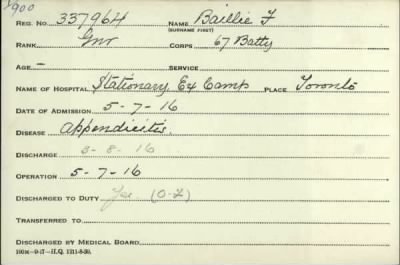 900
REG. NO. 337964 NAME Baillie F
(SURNAME FIRST)
RANK Gnr CORPS 67 Batty
AGE — SERVICE
NAME OF HOSPITAL Stationary Ex Camp PLACE Toronto
DATE OF ADMISSION 5-7-16
DISEASE Appendicitis.
DISCHARGE 3-8-16
OPERATION 5-7-16
DISCHARGED TO DUTY Yes
TRANSFERRED TO
DISCHARGED BY MEDICAL BOARD